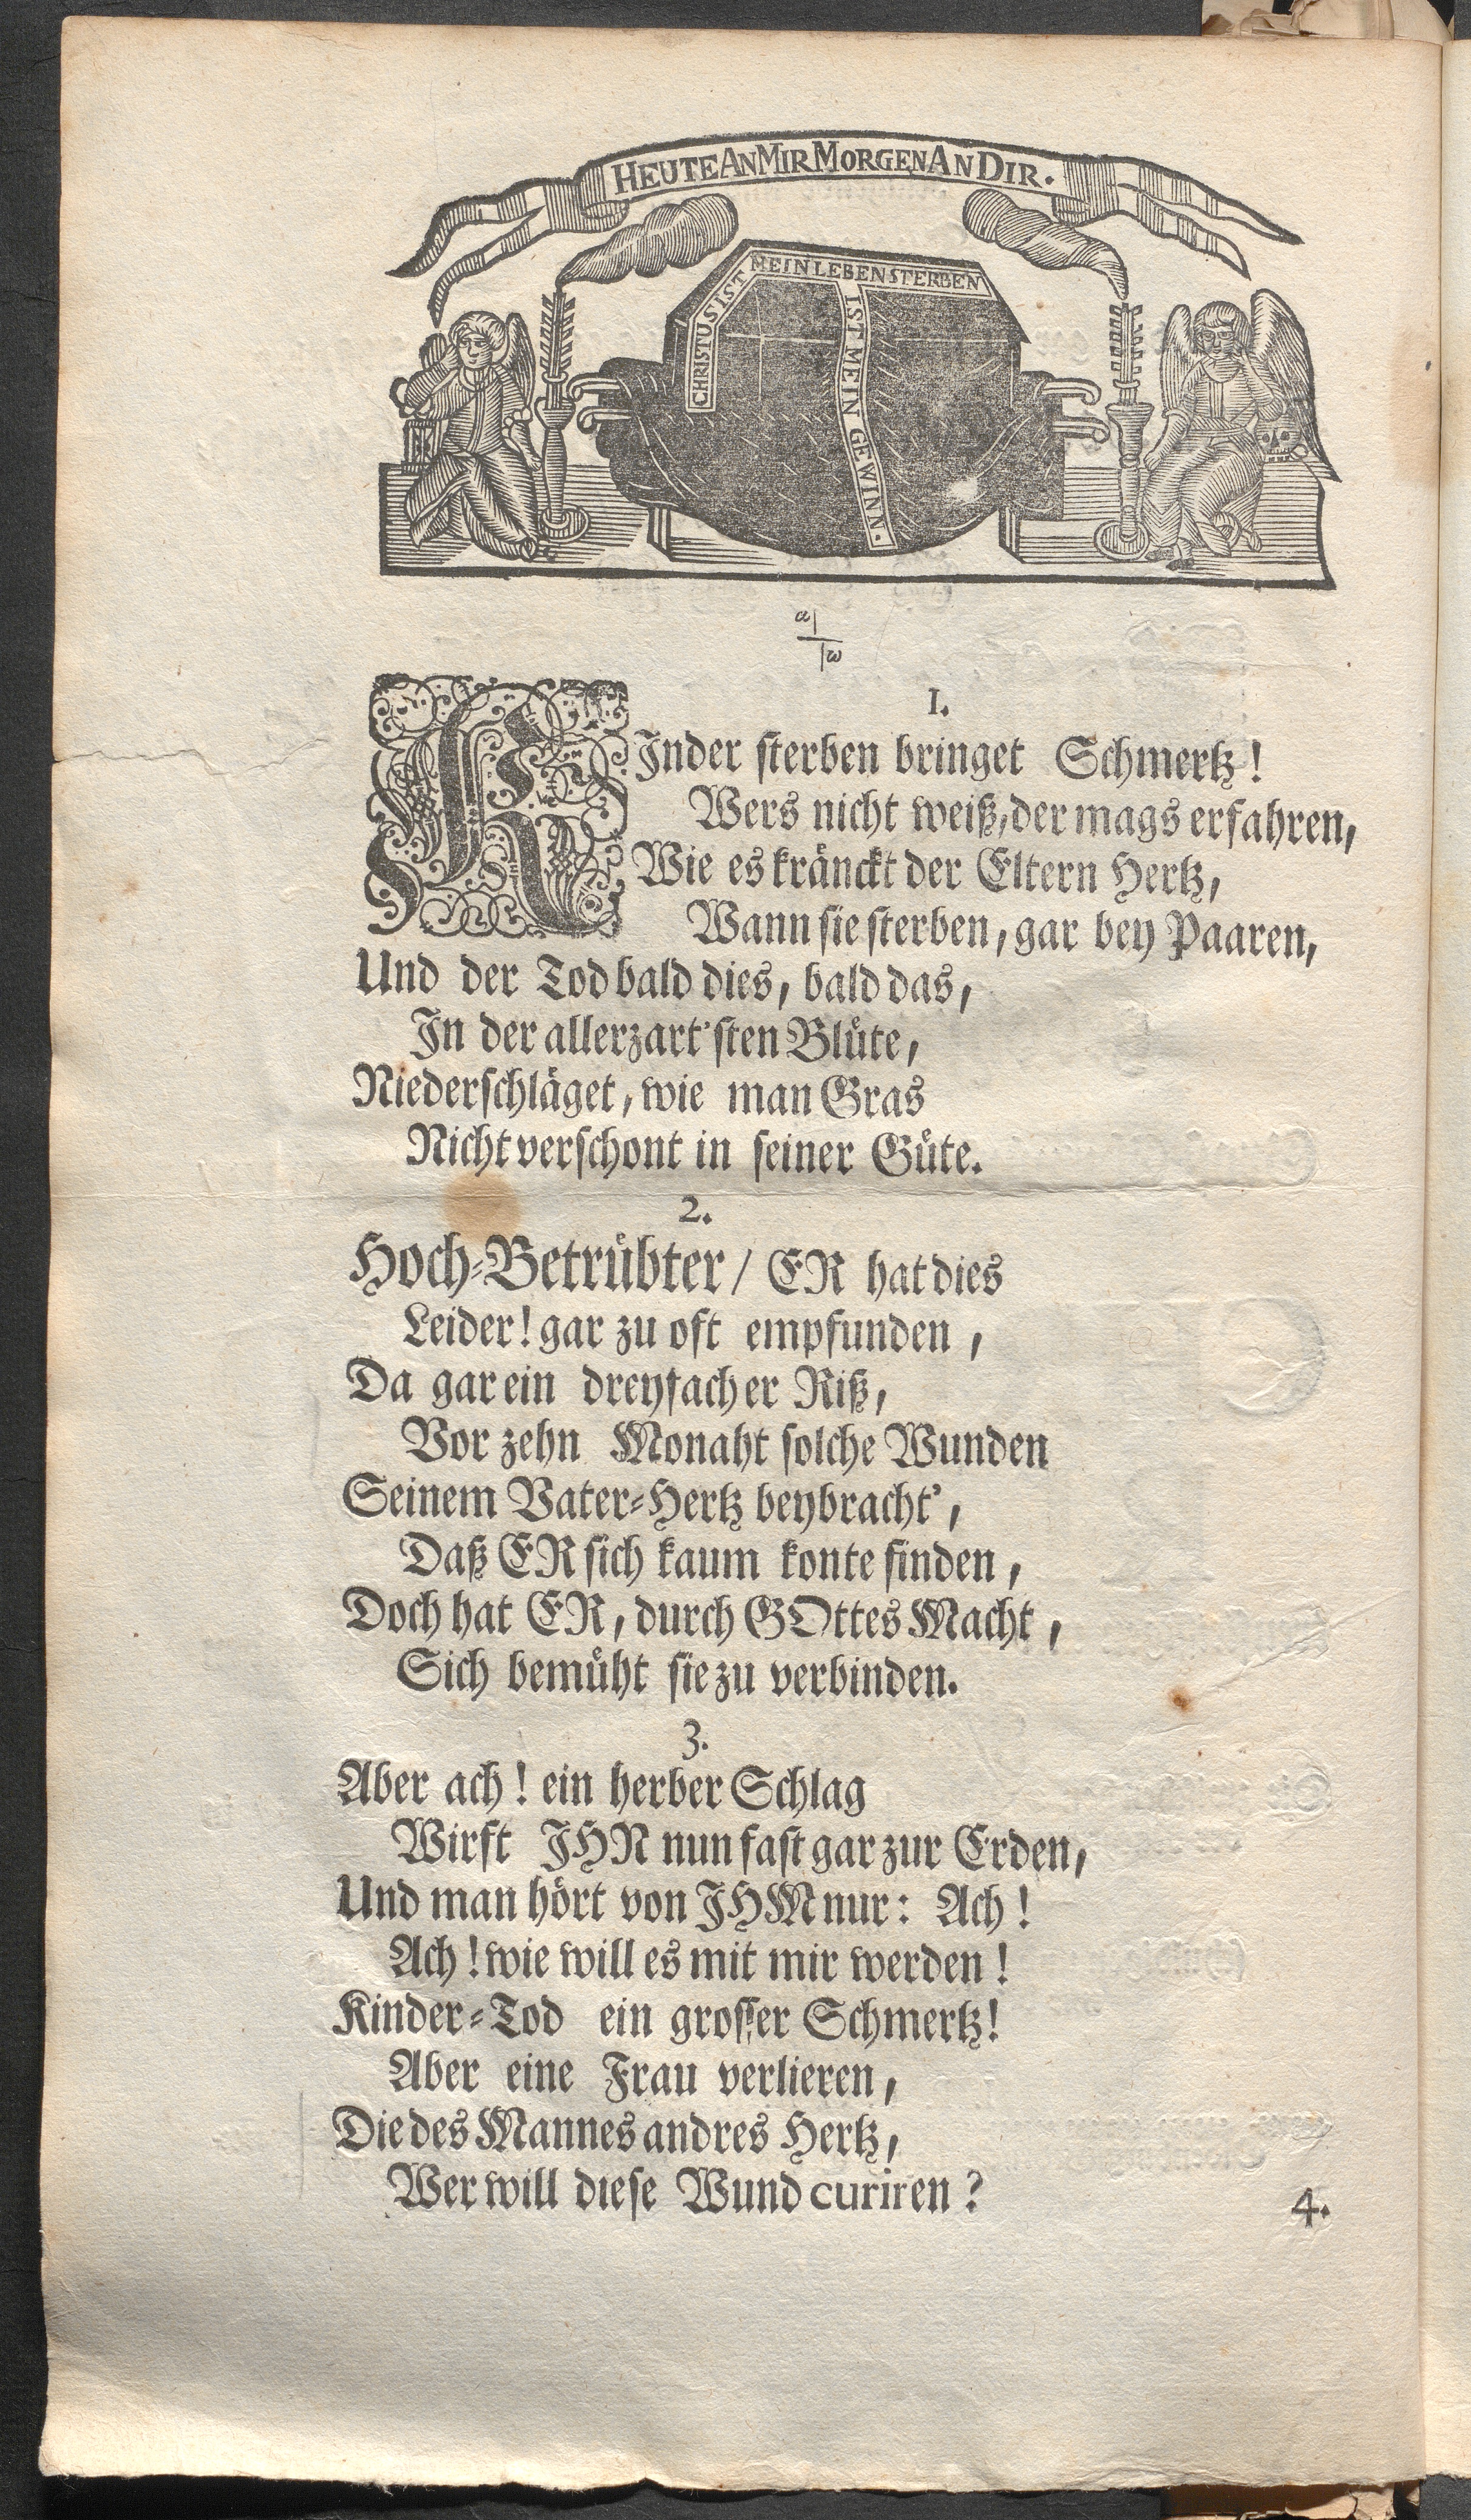 HEUTE AN MIR MORGEN AN DIR.
CHRISTUS IST MEIN LEBEN STERBEN
IST MEIN GEWINN.
α
ω
1.
KInder sterben bringet Schmertz!
Wers nicht weiß, der mags erfahren,
Wie es kränckt der Eltern Hertz,
Wann sie sterben, gar bey Paaren,
Und der Tod bald dies, bald das,
In der allerzart'sten Blüte,
Niederschläget, wie man Gras
Nicht verschont in seiner Güte.
2.
Hoch-Betrübter / ER hat dies
Leider! gar zu oft empfunden,
Da gar ein dreyfacher Riß,
Vor zehn Monaht solche Wunden
Seinem Vater-Hertz beybracht',
Daß ER sich kaum konte finden,
Doch hat ER, durch GOttes Macht,
Sich bemüht sie zu verbinden.
3.
Aber ach! ein herber Schlag
Wirft JHN nun fast gar zur Erden,
Und man hört von JHM nur: Ach!
Ach! wie will es mit mir werden!
Kinder-Tod ein grosser Schmertz!
Aber eine Frau verlieren,
Die des Mannes andres Hertz,
Wer will diese Wund curiren?
4.